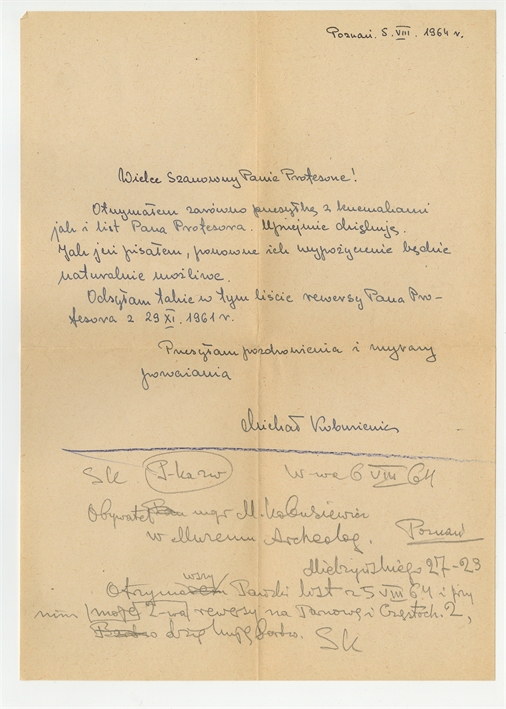 Poznań. 5. VIII. 1964 r.
Wielce Szanowny Panie Profesorze!
Otrzymałem zarówno przesyłkę z krzemakami
jak i list Pana Profesora. Uprzejmie dziękuję.
Jak już pisałem, ponowne ich wypożyczenie będzie
naturalnie możliwe.
Odsyłam także w tym liście rewersy Pana Pro-
fesora z 29 XI. 1961 r.
Przesyłam pozdrowienia i wyrazy
poważania
Michał Kobusiewicz
SK P-kaz w W-wa 6 VIII 64
Obywatel mgr M. Kobusiewicz
w Muzeum Archeolog. Poznań
Mielżyńskiego 27-23
wszy
Otrzyma Pański list z 5 VIII 64 i przy
nim moje 2-wa rewersy na Tarnowę i Częstoch. 2,
SK